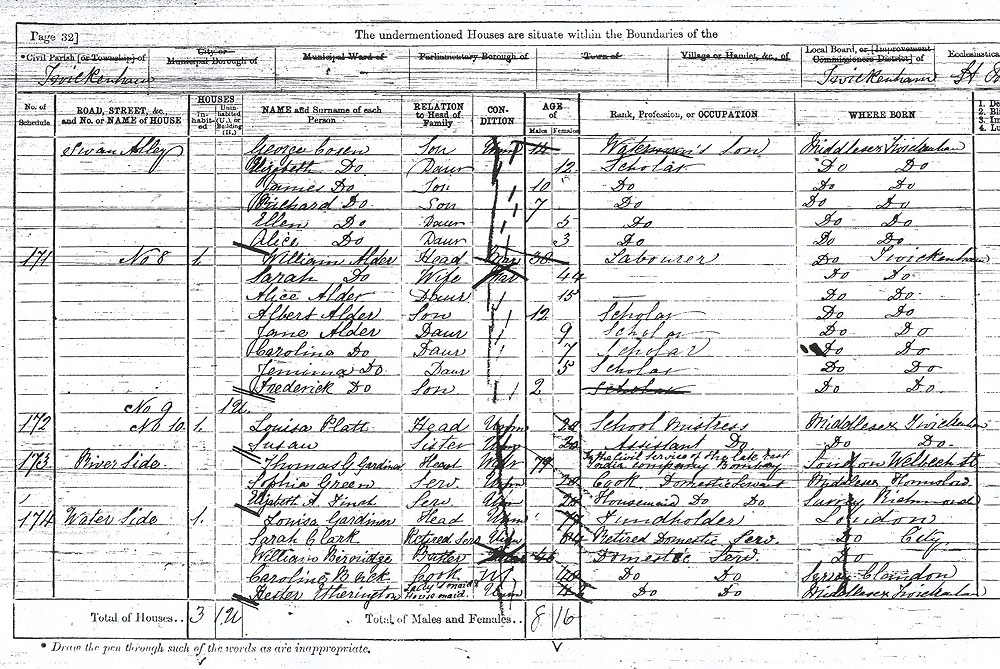 Page 32] The undermentioned Houses are situate within the Boundaries of the
*Civil Parish [or Township] of City or Municipal Borough of Municipal Ward of Parliamentary Borough of Town of Village or Hamlet, &c., of Local Board, or [Improvement Commissioners District] of Ecclesiastica
Twickenham Twickenham
No. of Schedule ROAD, STREET, &c., and No. or NAME of HOUSE HOUSES Inhabited Uninhabited (U.), or Building (B.) NAME and Surname of each Person RELATION to Head of Family CONDITION AGE Males Females Rank, Profession, or OCCUPATION WHERE BORN
Swan Alley George Cosen Son Unm Waterman's Son Middlesex Twickenham
Elizabeth Do Daur 12 Scholar Do Do
James Do Son 10 Do Do Do
Richard Do Son 7 Do Do Do
Ellen Do Daur 5 Do Do Do
Alice Do Daur 3 Do Do Do
171 No 8 1 William Alder Head Mar 38 Labourer Do Twickenham
Sarah Do Wife Mar 44 Do Do
Alice Alder Daur 15 Do Do
Albert Alder Son 12 Scholar Do Do
Jane Alder Daur 9 Scholar Do Do
Caroline Do Daur 7 Scholar Do Do
Jemima Do Daur 5 Scholar Do Do
Frederick Do Son 2 Scholar Do Do
No 9 1 U
172 No 10 1 Louisa Platt Head Unm School Mistress Middlesex Twickenham
Susan Sister Unm Assistant Do Do Do
173 River Side Thomas G Gardiner Head 79 In the Civil Service of the late East India Company Bombay London Welbeck St
Sophia Green Serv Unm Cook Domestic Servant Middlesex Hounslow
Elizabeth A Finch Serv Unm Housemaid Do Do Surrey Richmond
174 Water Side 1 Louisa Gardiner Head Unm Fundholder London
Sarah Clark Retired Serv Unm 64 Retired Domestic Serv. Do City
William Butler Domestic Serv. Do
Caroline Cook Do Do Surrey Clandon
Hester Etherington Lady's maid & House maid Unm Do Do Middlesex Twickenham
Total of Houses.. 3 1 U Total of Males and Females.. 8 16
* Draw the pen through such of the words as are inappropriate.